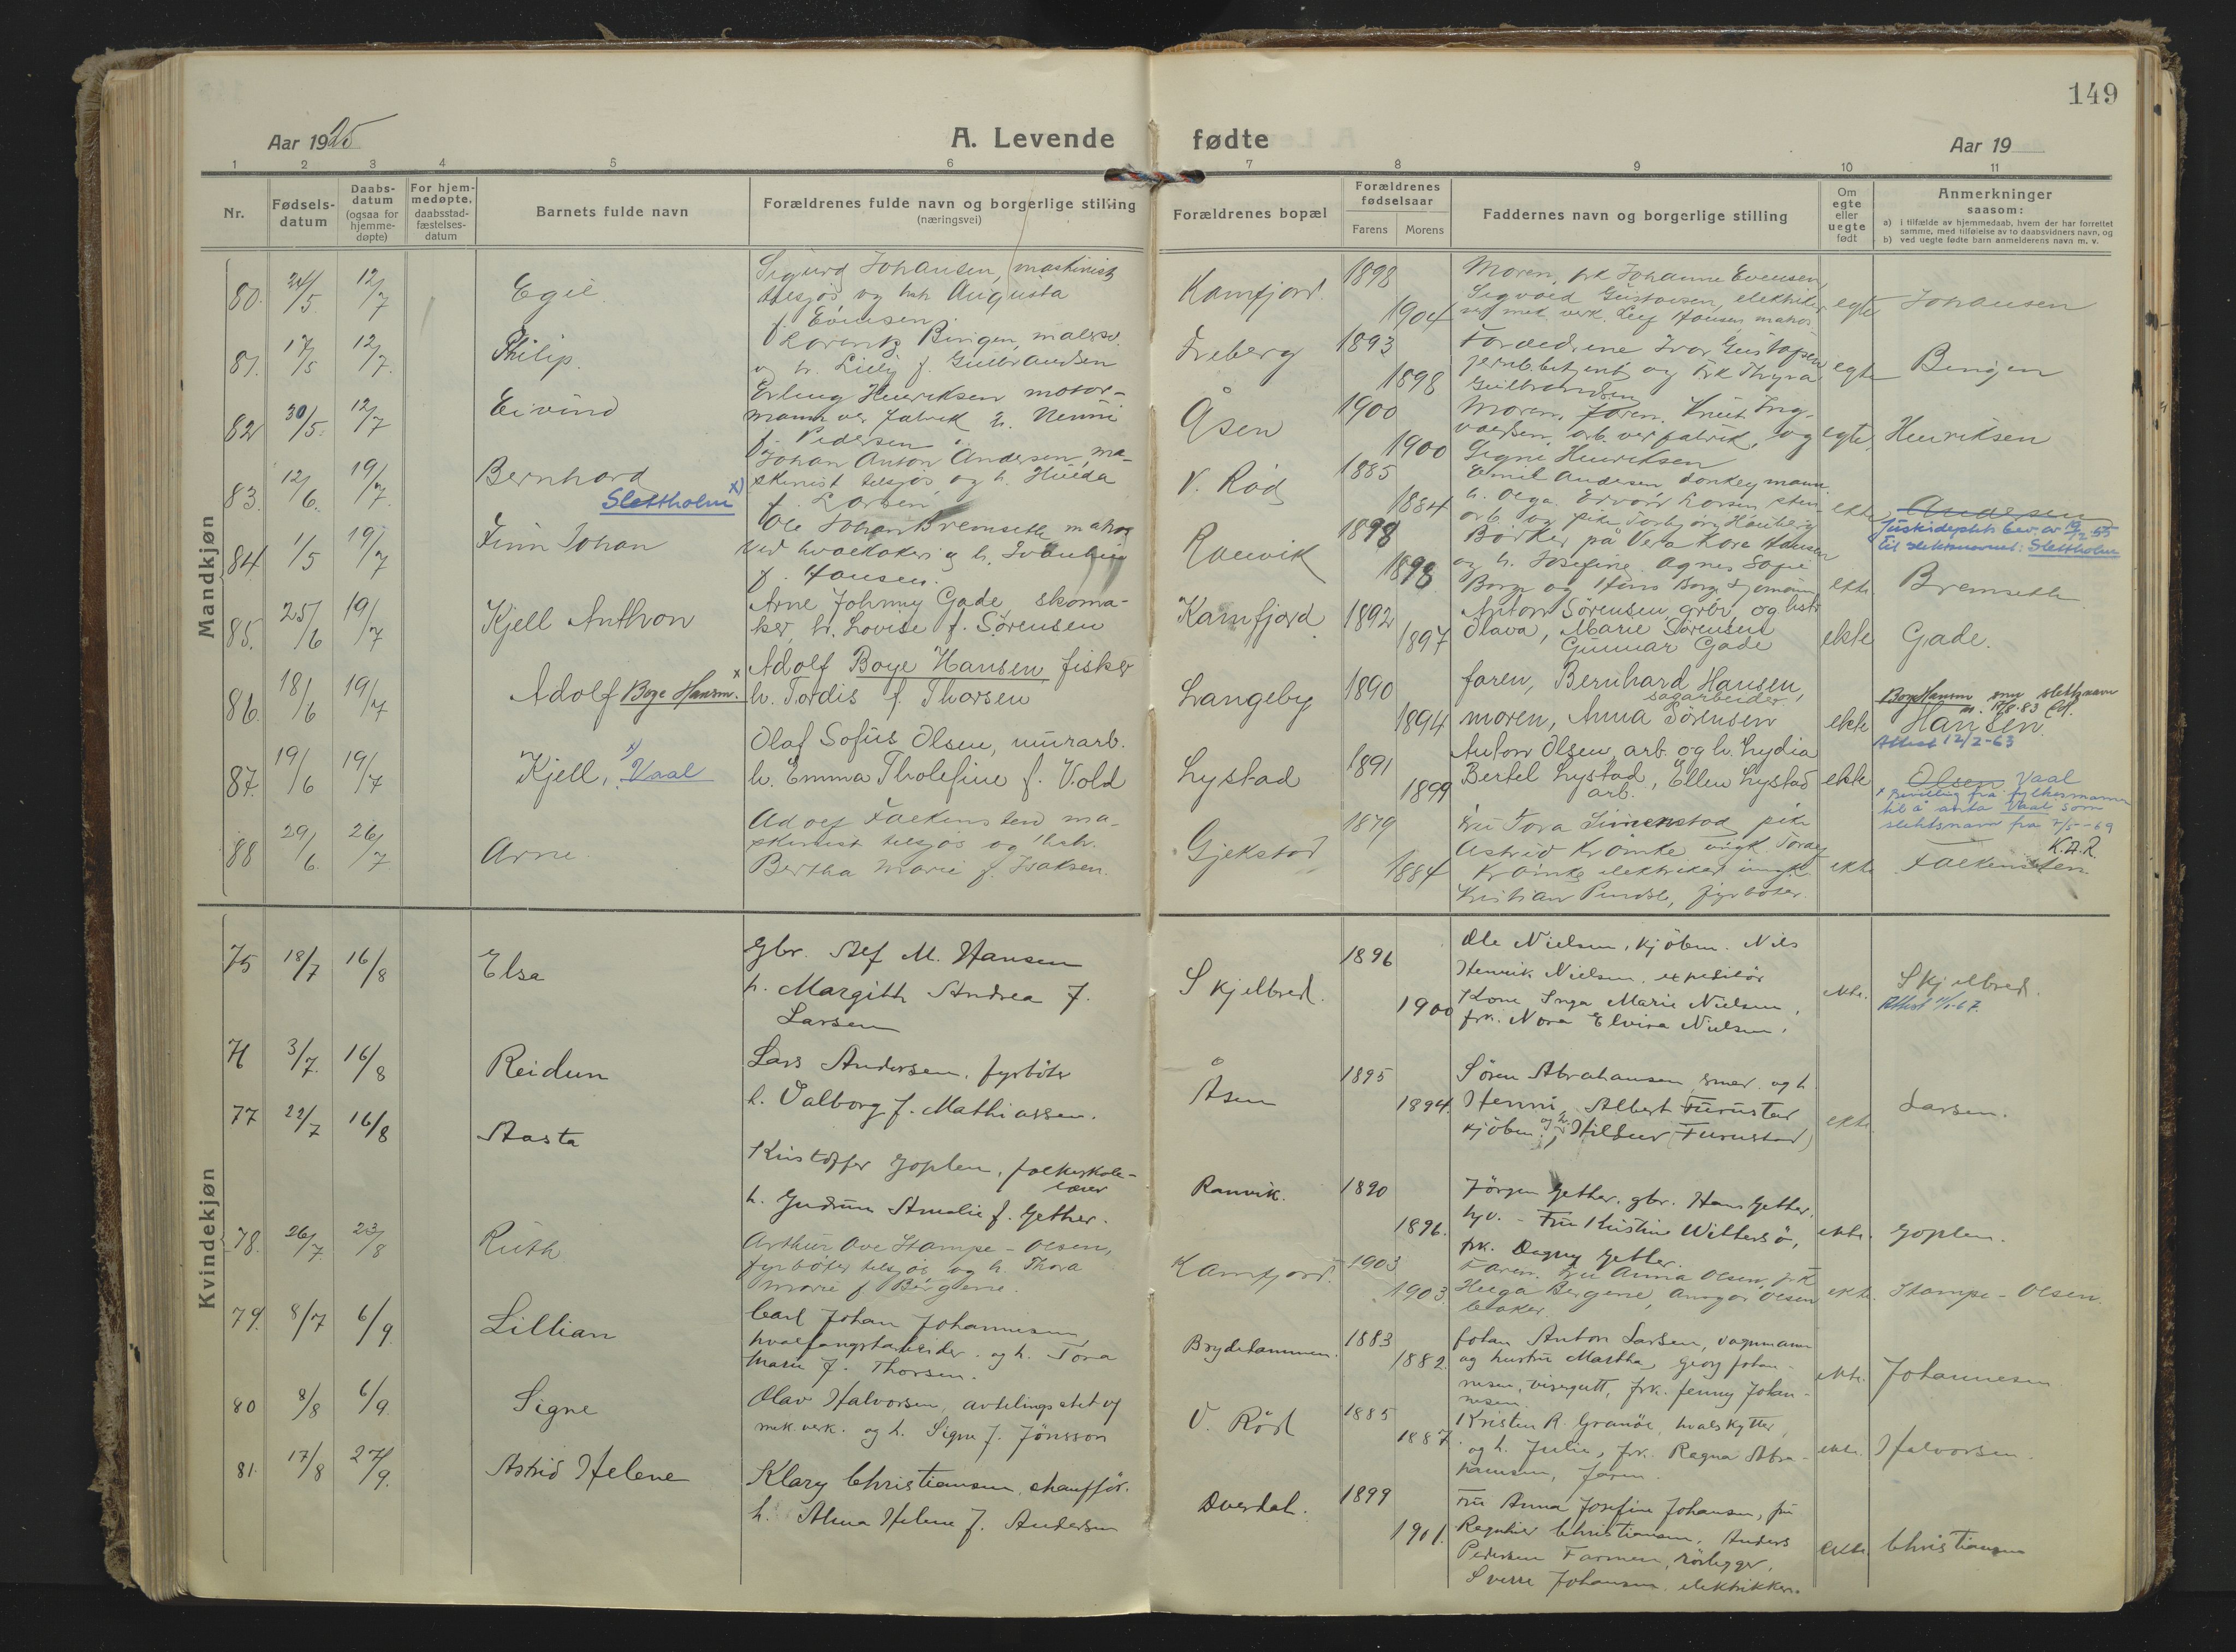 149
Aar 1925
A. Levende fødte
Aar 19
1 2 3 4 5 6 7 8 9 10 11
Nr.
Fødsels-
datum
Daabs-
datum
(ogsaa for
hjemme-
døpte)
For hjem-
medøpte.
daabsstad-
fæstelses-
datum
Barnets fulde navn
Forældrenes fulde navn og borgerlige stilling
(næringsvei)
Forældrenes bopæl
Forældrenes
fødselsaar
Farens Morens
Faddernes navn og borgerlige stilling
Om
egte
eller
uegte
født
Anmerkninger
saasom:
a) i tilfælde av hjemmedaab, hvem der har forrettet
samme, med tilføielse av to daabsvidners navn, og
b) ved uegte fødte barn anmelderens navn m. v.
Mandkjøn
80. 24/5 12/7 Egil
Sigurd Johansen, maskinist
tilsjøs og hstr Augusta
f. Evensen
Kamfjord. 1898 1904
Moren, frk Johanne Evensen
Sigvald Gustavsen, elektriker
ved mek. verk. Leif Hansen, matros
egte Johansen
81. 17/5 12/7 Philip.
Lorentz Bingen, malersv.
og h. Lilly f. Gulbrandsen
Freberg 1893 1898
Forældrene Ivar Gustavsen
jernb.betjent og frk Thyra
Gulbrandsen
egte Bingen
82 30/5. 12/7 Eivind
Erling Henriksen motor-
mann ver fabrik h. Nenni
f. Pedersen
Åsen 1900 1900
Moren, faren, Knut Ing-
valdsen, arb. ver fabrik, og
Signe Henriksen
egte, Henriksen
83. 12/6. 19/7. Bernhard
Slettholm x)
Johan Anton Andersen, ma-
skinist tilsjøs og h. Hulda
f. Larsen
V. Rød 1885 1884
Emil Andersen donkeymann
h. Olga. Edvard Larsen, sten-
arb. og pike Torbjørg Hauberg
ekte, Andersen
Justisdeptets bev. av 19/2-55
til slektsnavnet: Slettholm
84 1/5 19/7 Finn Johan
Ole Johan Bremseth matros
ved hvalkokeri og h. Svanhild
f. Hansen.
Ranvik 1898 1898
Bødker på Vera Kare Hansen
og h. Josefine. Agnes Sofie
Borge og Hans Borge sjømann
ekte Bremseth
85. 25/6 19/7 Kjell Anthon
Arne Johnny Gade, skoma-
ker, h. Lovise f. Sørensen
Kamfjord 1892 1897
Anton Sørensen, grbr, og hstr
Olava, Marie Sørensen
Gunnar Gade
ekte Gade.
86. 18/6 19/7 Adolf Boye Hansen. x
Adolf Boye Hansen fisker
h. Tordis f. Thorsen
Langeby 1890 1894
faren, Bernhard Hansen,
sagarbeider
moren, Anna Sørensen
ekte Boye Hansen som slektsnavn
m. 17/8-83
Hansen.
Attest 12/2-63
87. 19/6 19/7 Kjell, x) Vaal
Olaf Sofus Olsen, murarb.
h. Emma Tholefine f. Vold
Lystad 1891 1899
Anton Olsen, arb. og h. Lydia
Bertel Lystad, Ellen Lystad
arb.
ekte Olsen Vaal
x Bevilling fra fylkesmannen
til å anta Vaal som
slektsnavn fra 2/5-69
K.A.R.
88 29/6. 26/7 Arne.
Adolf Falkensten ma-
skinist tilsjøs og hstr.
Bertha Marie f. Isaksen.
Gjekstad 1879 1884
Fru Tora Simenstad pike
Astrid Krømke ungk. Toralf
Krømke elektriker ungk.
Kristian Pindsle, fyrbøter.
ekte Falkensten
Kvindekjøn
75 18/7 16/8 Elsa
Gbr. Alf M. Hansen
h. Margith Andrea f.
Larsen
Skjelbred. 1896 1900
Ole Nielsen, kjøbm. Nils
Henrik Nielsen, expeditør
Kone Inga Marie Nielsen,
frk. Nora Elvira Nielsen.
ekte. Skjelbred.
Attest
76 3/7. 16/8 Reidun
Lars Andersen, fyrbøter
h. Valborg f. Mathiassen.
Åsen 1895 1894
Søren Abrahamsen, smed. og h.
Henni, Albert Furustad
kjøbm. og h. Hildur (Furustad)
ekte. Larsen.
77 22/7 16/8 Aasta
Kristoffer Goplen, folkeskole-
lærer
h. Gudrun Amalie f. Gether.
Ranvik. 1890 1896.
Jørgen Gether, gbr. Hans Gether,
hjv. - Fru Kristine Wittersø,
frk. Dagny Gether.
ekte. Goplen.
78. 26/7 23/8 Ruth
Arthur Ove Stampe-Olsen,
fyrbøter tilsjøs og h. Thora
Marie f Bergene.
Kamfjord. 1903 1903.
Faren. Fru Anna Olsen, frk
Helga Bergene, Ansgar Olsen
baker
ekte. Stampe-Olsen.
79. 8/7 6/9. Lillian
Carl Johan Johannesen,
hvalfangstarbeider. og h. Tora
Marie f. Thorsen.
Brydedammen. 1883 1882.
Johan Anton Larsen, vognmann
og hustru Martha, Georg Johan-
nesen, visergutt, frk. Jenny Johan-
nesen.
ekte. Johannesen
80 8/8 6/9. Signe
Olav Halvorsen, avdelingschef v/
mek. verk. og h. Signe f. Jönsson
V. Rød 1885 1887
Kristen R. Granøe, hvalskytter,
og h. Julie, frk. Ragna Abra-
hamsen, faren.
ekte. Halvorsen.
81. 17/8 27/9. Astrid Helene
Klary Christiansen, chauffør.
h. Alma Helene f. Andersen
Dverdal. 1899 1901.
Fru Anna Josefine Johansen, fru
Ragnhild Christiansen, Anders
Pedersen Farmen, rørlegger,
Sverre Johansen, elektrikker.
ekte. Christiansen